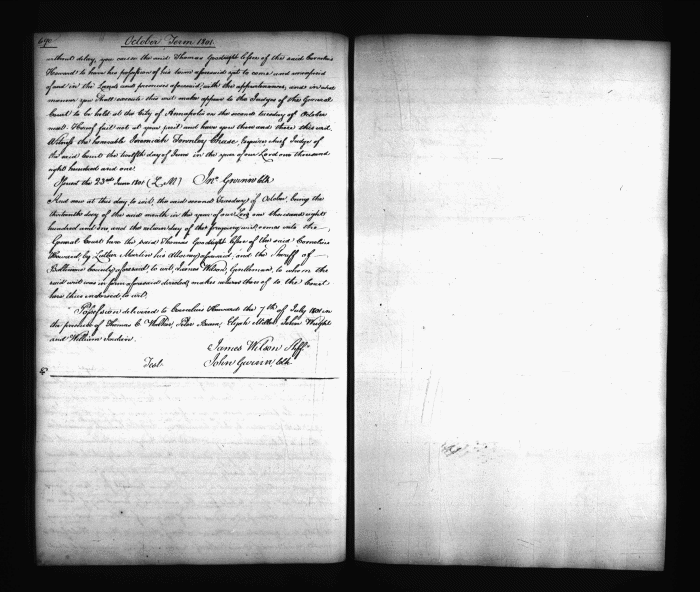 690 October Term 1801.
without delay, you cause the said Thomas Goodright lessee of the said Cornelius
Howard to have his possession of his term aforesaid yet to come and unexpired
of and in the Lands and premises aforesaid, with the appurtenances, and in what
manner you shall execute this writ make appear to the Judges of the General
Court to be held at the City of Annapolis on the second tuesday of October
next. Hereof fail not at your peril and have you then and there this writ.
Witness the honorable Jeremiah Townley Chase Esquire chief Judge of
the said Court the twelfth day of June in the year of our Lord one thousand
eight hundred and one.
Issued the 23rd June 1801 (L.M) Jno Gwinn Clk
And now at this day, to wit, the said second Tuesday of October being the
thirteenth day of the said month in the year of our Lord one thousand eight
hundred and one, and the return day of the foregoing writ, comes into the
General Court here the said Thomas Goodright lessee of the said Cornelius
Howard, by Luther Martin his Attorney aforesaid, and the Sheriff of
Baltimore County aforesaid to wit, James Wilson, Gentleman, to whom the
said writ was in form aforesaid directed, makes return thereof to the Court
here thus endorsed to wit.
Possession delivered to Cornelius Howard the 7th of July 1801 in
the presence of Thomas C Walker, Peter Elijah John Wright
and William
James Wilson Shff.
Test John Gwinn Clk